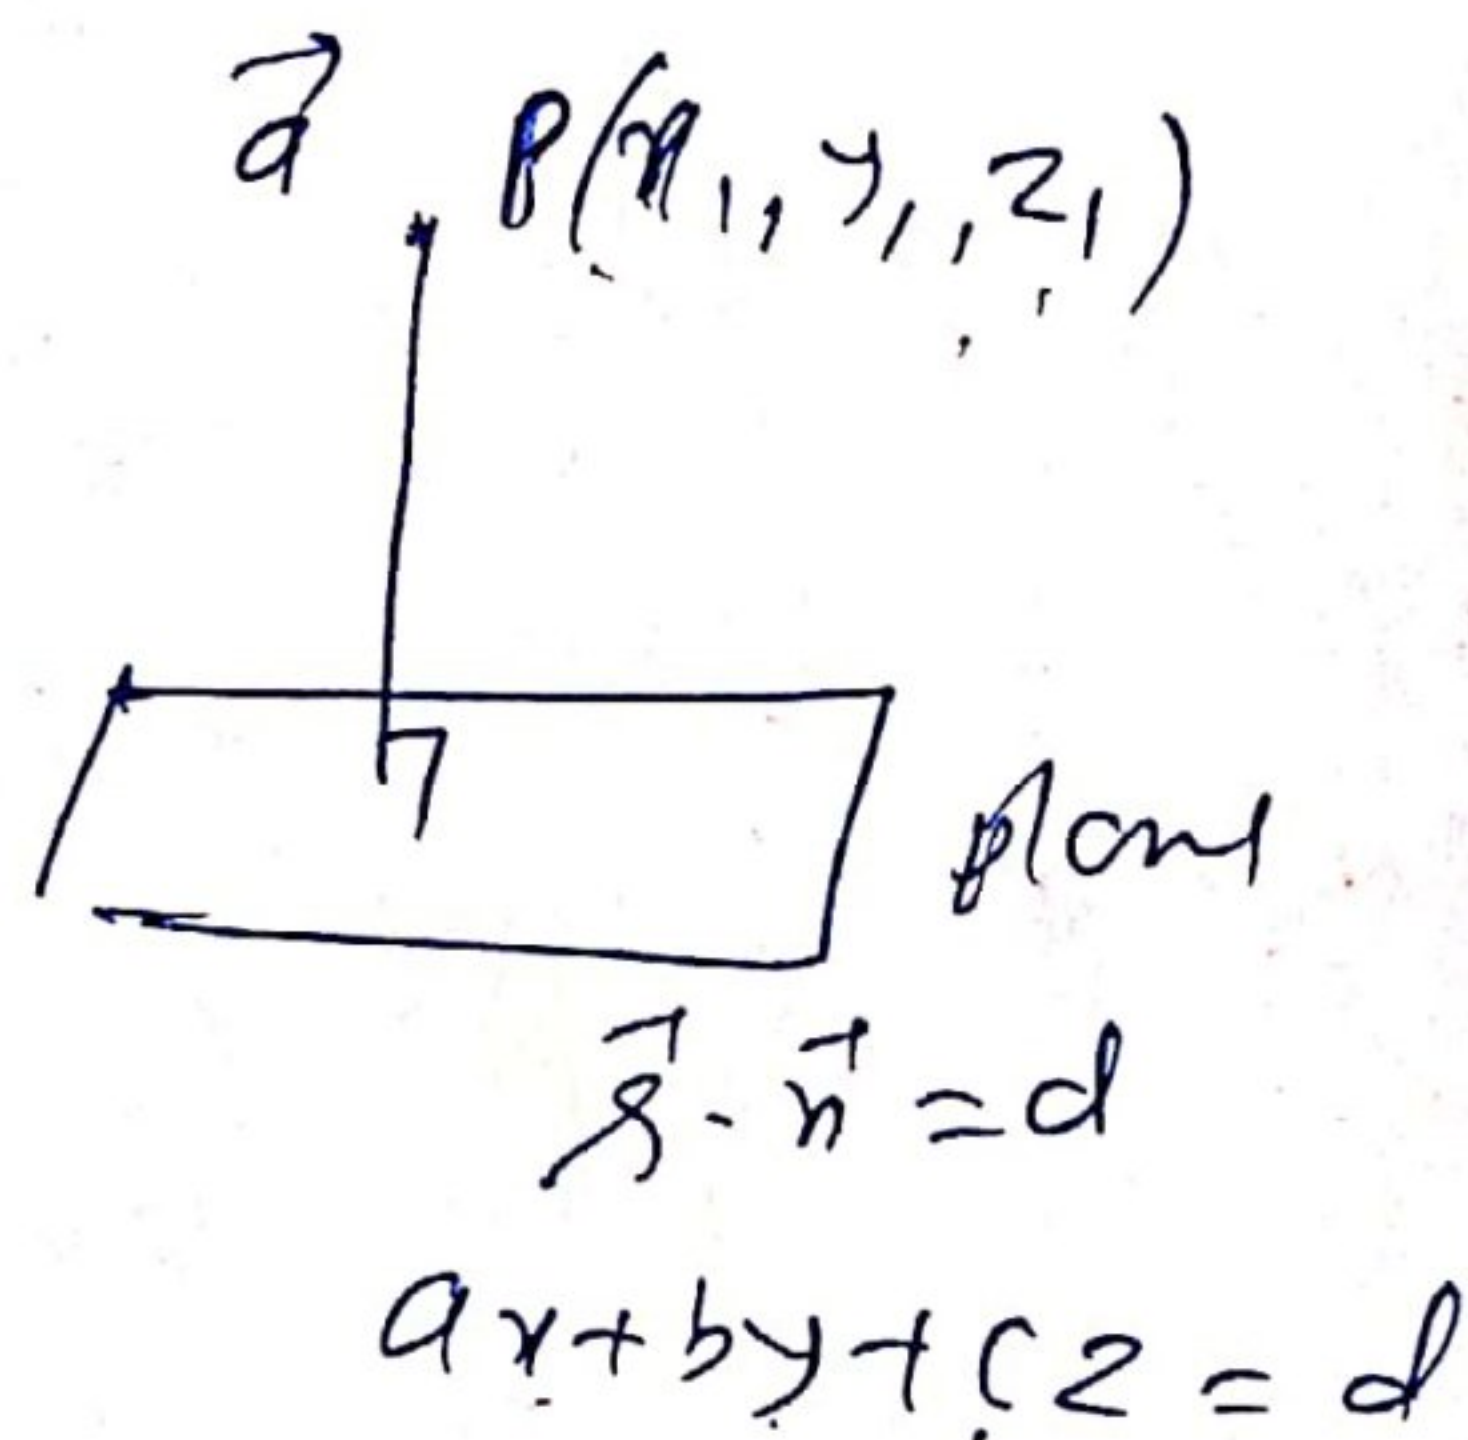 a⃗ P(x₁, y₁, z₁)
plane
r⃗ · n⃗ = d
ax + by + cz = d